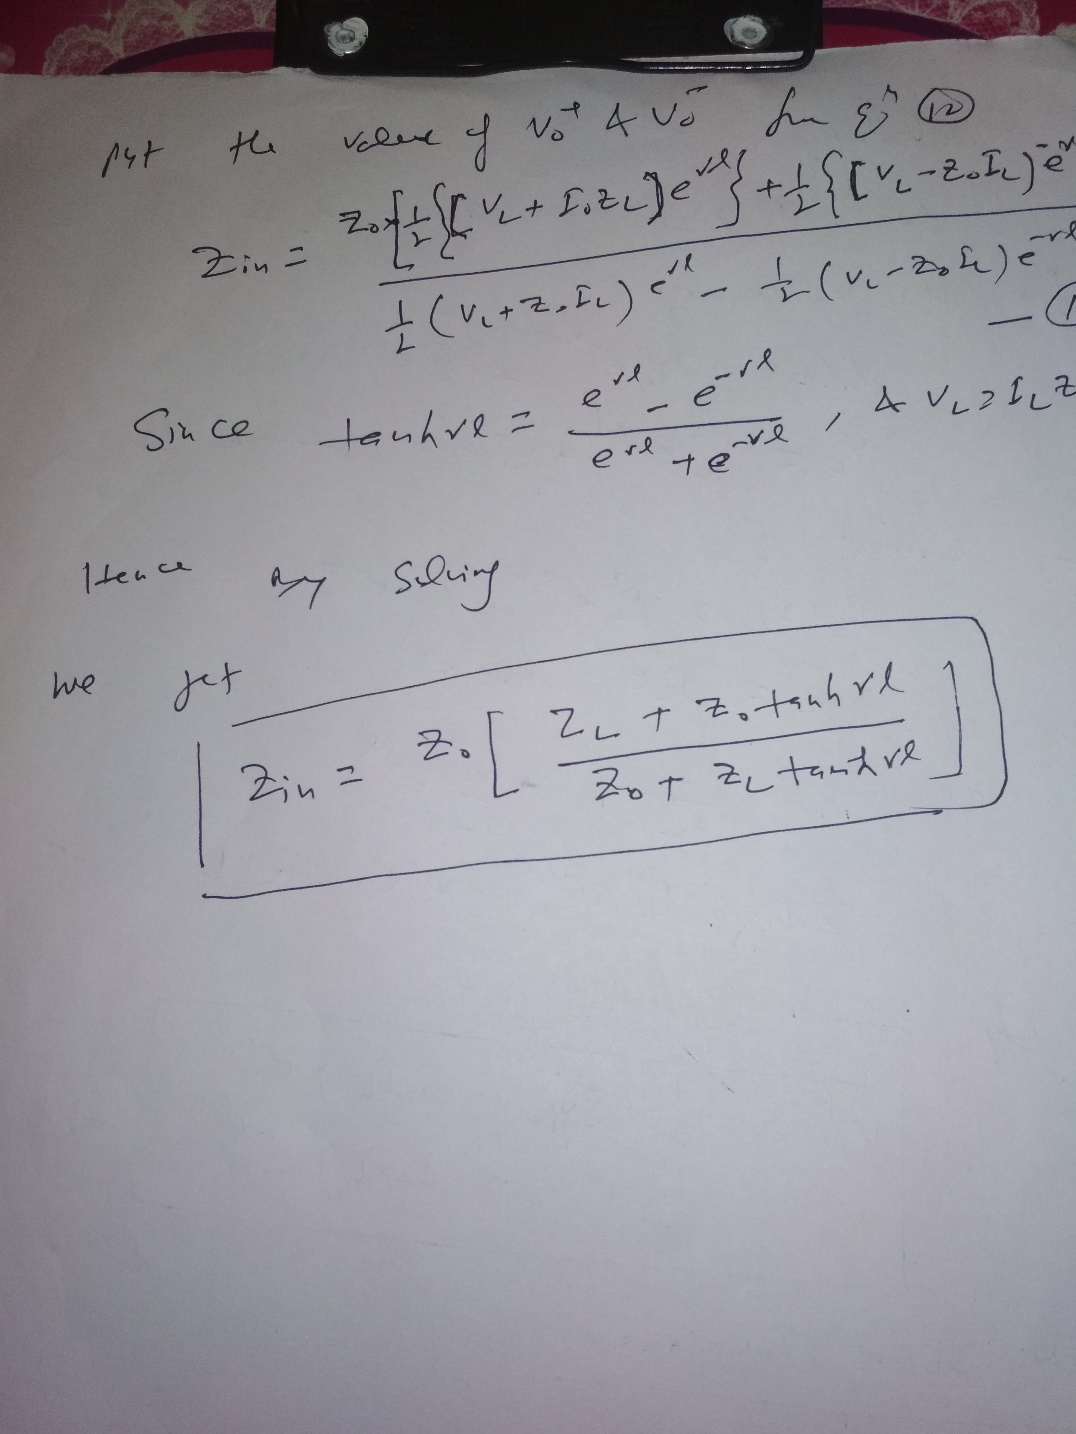 put the value of V₀⁺ & V₀⁻ from eqⁿ ⑫
Zin = Z₀×[½{[V_L + I₀Z_L]e^{γl}} + ½{[V_L - Z₀I_L]e^{-γ
½(V_L + Z₀I_L)e^{γl} - ½(V_L - Z₀I_L)e^{-γl
— (1
Since tanhγl = (e^{γl} - e^{-γl}) / (e^{γl} + e^{-γl}), & V_L = I_L Z
Hence by solving
we get
Zin = Z₀ [ (Z_L + Z₀ tanh γl) / (Z₀ + Z_L tanh γl) ]